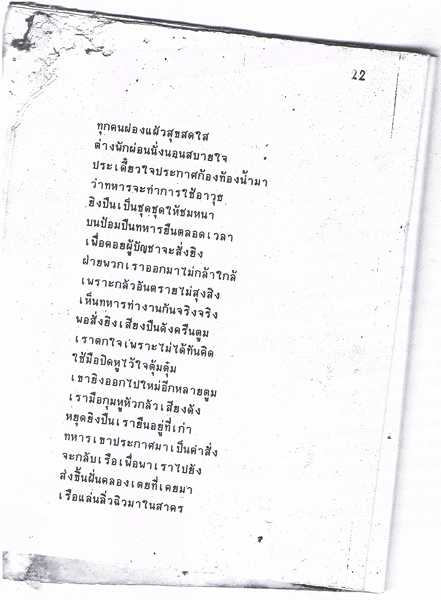 22
ทุกคนผ่องแผ้วสุขสดใส
ต่างพักผ่อนนั่งนอนสบายใจ
ประเดี๋ยวใจประกาศก้องท้องน้ำมา
ว่าทหารจะทำการใช้อาวุธ
ยิงปืนเป็นชุดชุดให้ชมหนา
บนป้อมปืนทหารยืนตลอดเวลา
เพื่อคอยผู้บัญชาจะสั่งยิง
ฝ่ายพวกเราออกมาไม่กล้าใกล้
เพราะกลัวอันตรายไม่สุงสิง
เห็นทหารทำงานกันจริงจริง
พอสั่งยิงเสียงปืนดังครืนตูม
เราตกใจเพราะไม่ได้ทันคิด
ใช้มือปิดหูไว้ใจตุ้มตุ้ม
เขายิงออกไปใหม่อีกหลายตูม
เรามือกุมหูหัวกลัวเสียงดัง
หยุดยิงปืนเรายืนอยู่ที่เก่า
ทหารเขาประกาศมาเป็นคำสั่ง
จะกลับเรือเพื่อพาเราไปยัง
ส่งขึ้นฝั่นคลองเตยที่เคยมา
เรือแล่นลิ่วฉิวมาในสาคร